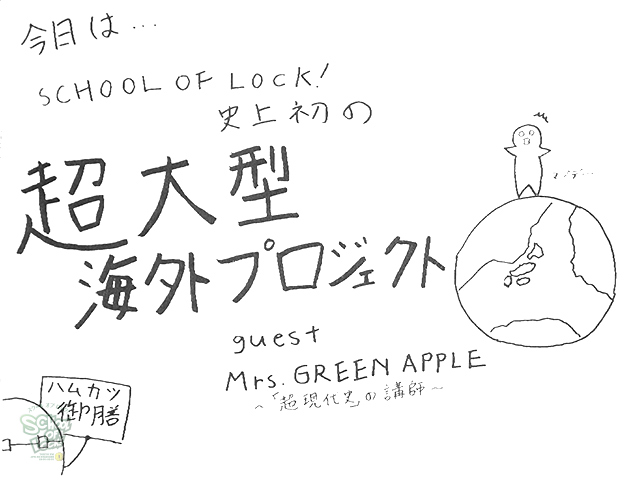 今日は…
SCHOOL OF LOCK!
史上初の
超大型
海外プロジェクト
マジデ…
guest
Mrs. GREEN APPLE
～「超現代史」の講師～
ハムカツ
御膳